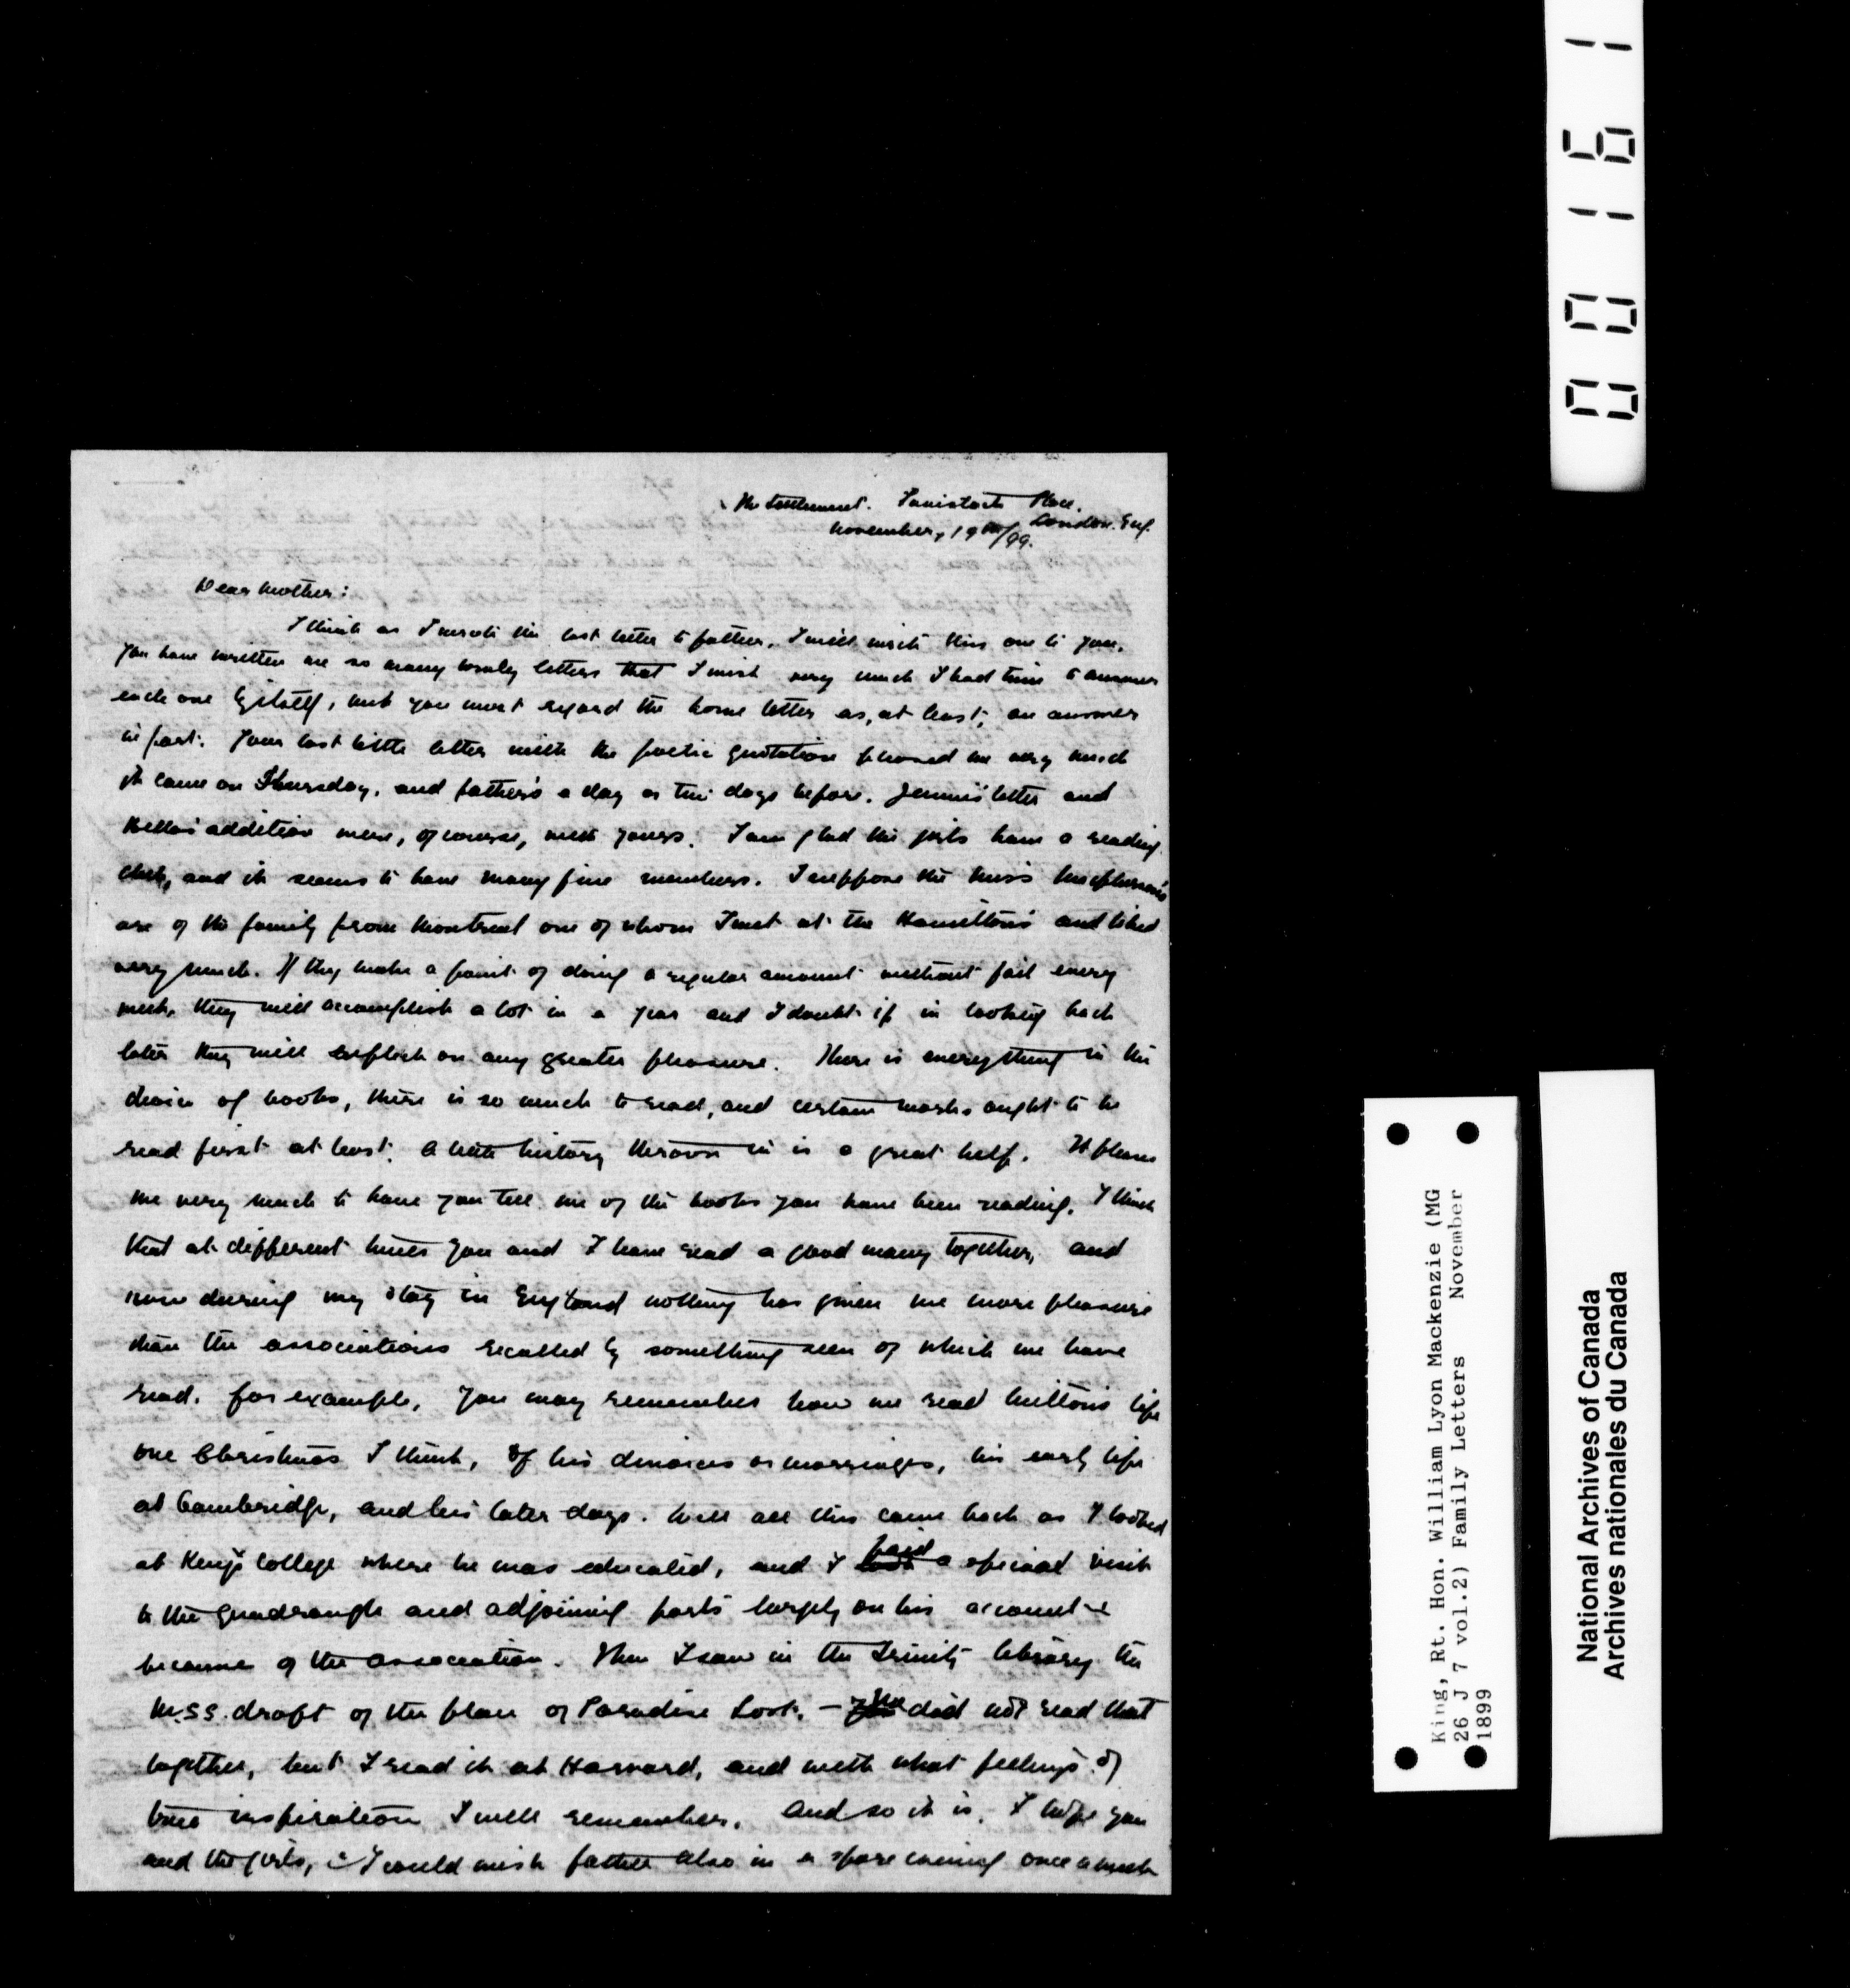 The Settlement. Tavistock Place.
London. Eng.
November, 19th/99.
Dear Mother:
I think as I wrote the last letter to father, I will write this one to you.
You have written me so many lovely letters that I wish very much I had time to answer
each one by itself, but you must regard the home letter as, at least, an answer
in part. Your last little letter with the poetic quotation pleased me very much
it came on Thursday, and father's a day or two days before. Jennie's letter and
Bella's addition were, of course, with yours. I am glad the girls have a reading
club, and it seems to have many fine members. I suppose the Miss Macpherson's
are of the family from Montreal one of whom I met at the Hamilton's and liked
very much. If they make a point of doing a regular amount without fail every
week, they will accomplish a lot in a year and I doubt if in looking back
later they will reflect on any greater pleasure. There is everything in the
choice of books, there is so much to read, and certain works ought to be
read first at least. A little history thrown in is a great help. It pleases
me very much to have you tell me of the books you have been reading. I think
that at different times you and I have read a good many together, and
now during my stay in England nothing has given me more pleasure
than the associations recalled by something seen of which we have
read. For example, you may remember how we read Milton's life
one Christmas I think, of his divorces or marriages, his early life
at Cambridge, and his later days. Well all this came back as I looked
at King's College where he was educated, and I paid a special visit
to the quadrangle and adjoining parts largely on his account &
because of the association. Then I saw in the Trinity library the
M.S.S. draft of the plan of Paradise Lost. - We did not read that
together, but I read it at Harvard, and with what feelings of
true inspiration I well remember. And so it is. I hope you
and the girls, & I would wish father also in a spare evening once a week
00161
King, Rt. Hon. William Lyon Mackenzie (MG
26 J 7 vol.2) Family Letters November
1899
National Archives of Canada
Archives nationales du Canada